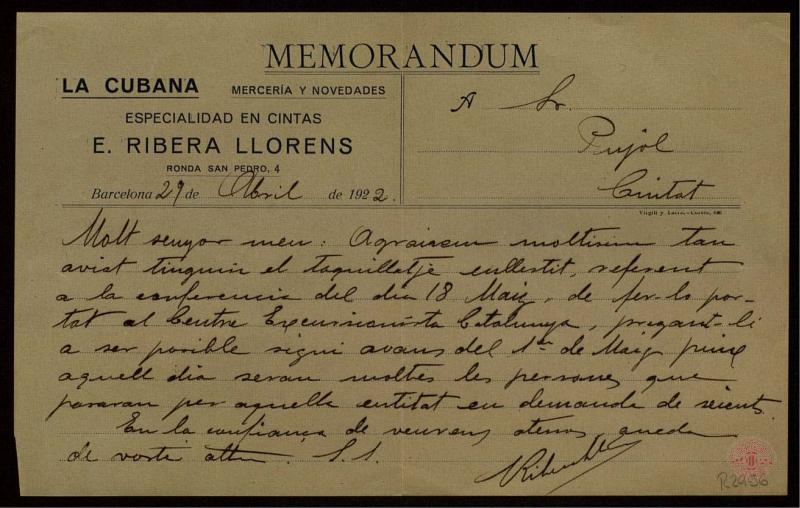 MEMORANDUM
LA CUBANA MERCERÍA Y NOVEDADES
ESPECIALIDAD EN CINTAS
E. RIBERA LLORENS
RONDA SAN PEDRO, 4
Barcelona 29 de Abril de 1922.
A Sr.
Pujol
Ciutat
Molt senyor meu: Agrairem moltisim tan
aviat tinguin el taquillatje enllestit, referent
a la conferencia del dia 18 Maig, de fer-lo por-
tat al Centre Excursionista Catalunya, pregant-li
a ser posible sigui avans del 1er de Maig puix
aquell dia seran moltes les persones que
pasaran per aquella entitat en demanda de seients.
En la confiança de veurens atesos queda
de vostè attm. S.S.
R.2956